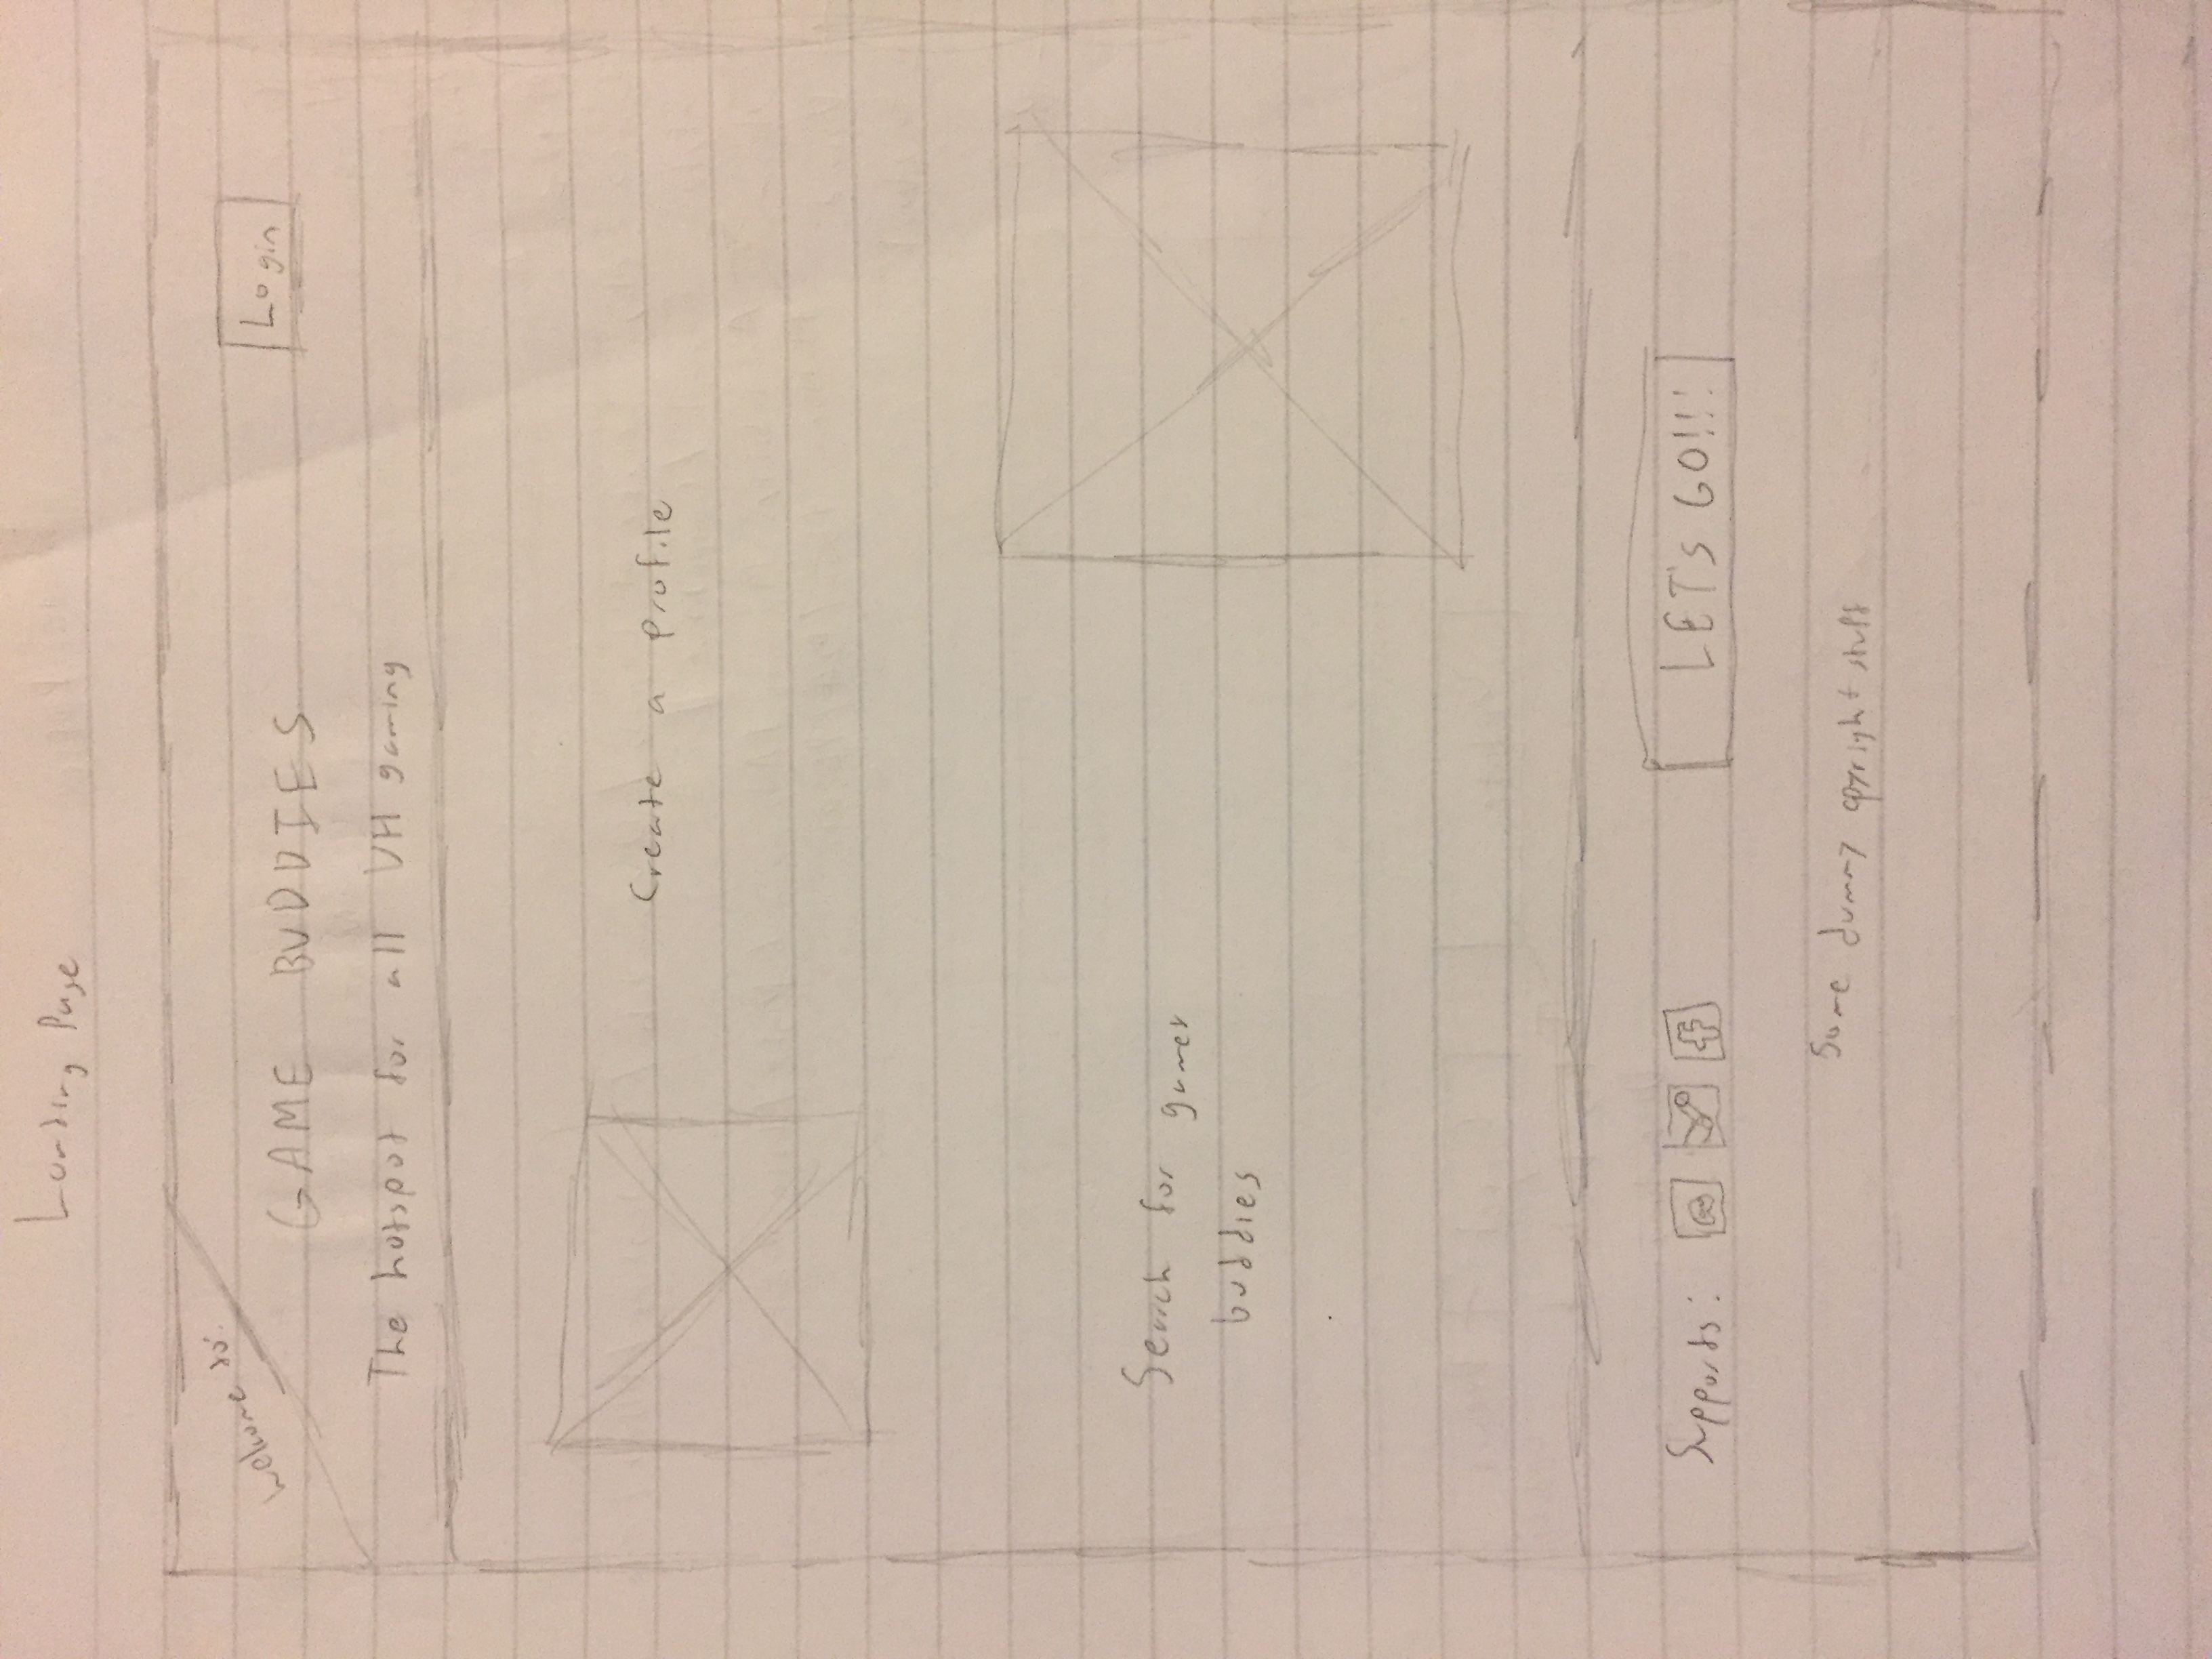 Landing Page
Welcome to:
GAME BUDDIES
Login
The hotspot for all UH gaming
Create a profile
Search for gamer
buddies
Supports:
LET'S GO!!!
Some dummy copyright stuff